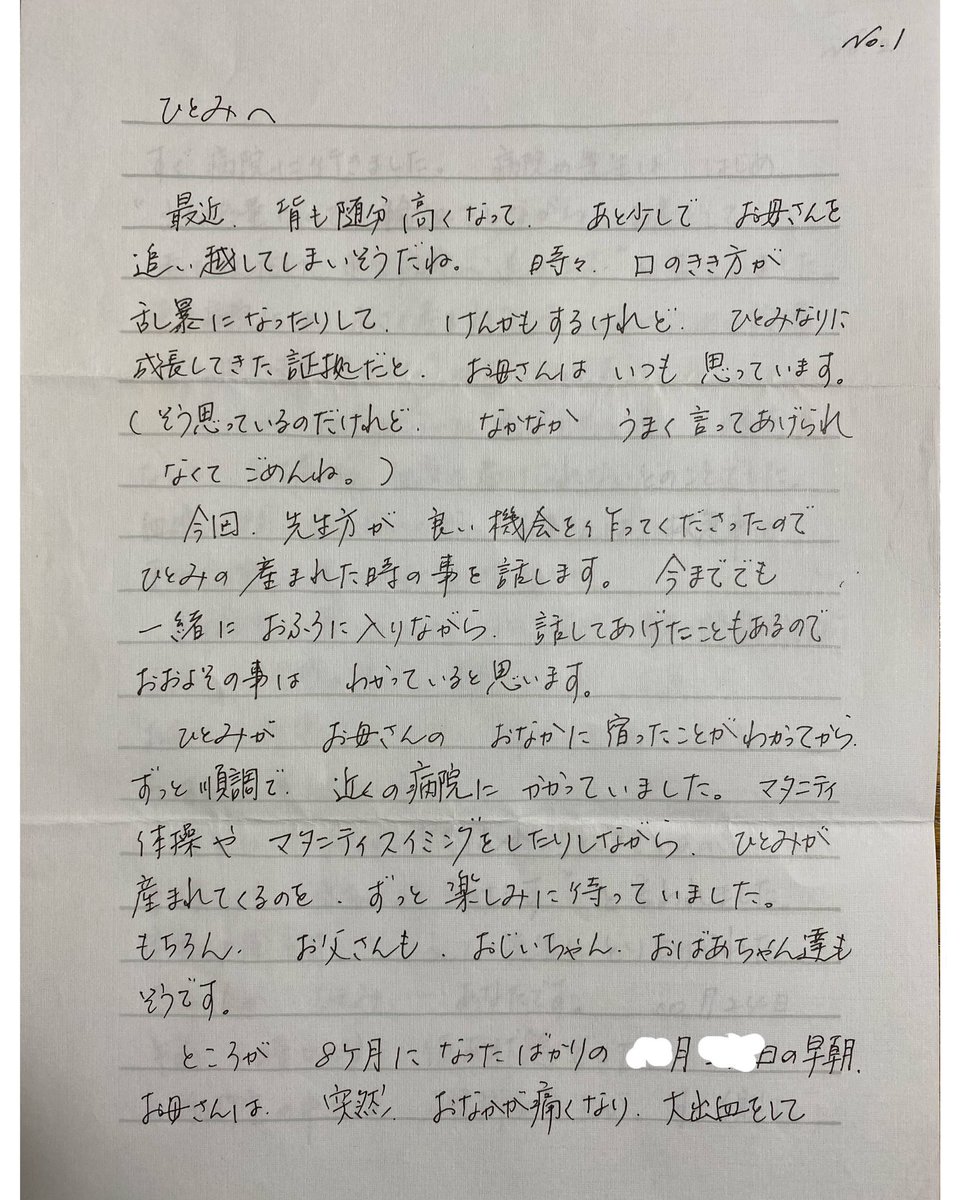 No.1
ひとみへ
最近、背も随分高くなって、あと少しで お母さんを
追い越してしまいそうだね。 時々、口のきき方が
乱暴になったりして、けんかもするけれど、ひとみなりに
成長してきた証拠だと、お母さんは いつも 思っています。
(そう思っているのだけれど、なかなか うまく言ってあげられ
なくて ごめんね。)
今回、先生方が 良い機会を作ってくださったので
ひとみの産まれた時の事を話します。 今まででも
一緒に おふろに入りながら、話してあげたこともあるので
おおよその事は わかっていると思います。
ひとみが お母さんの おなかに宿ったことがわかってから、
ずっと順調で、近くの病院に かかっていました。 マタニティ
体操や マタニティスイミングをしたりしながら、ひとみが
産まれてくるのを、ずっと楽しみに待っていました。
もちろん、お父さんも、おじいちゃん、おばあちゃん達も
そうです。
ところが 8ケ月になったばかりの 月 日の早朝、
お母さんは、突然、おなかが痛くなり、大出血をして